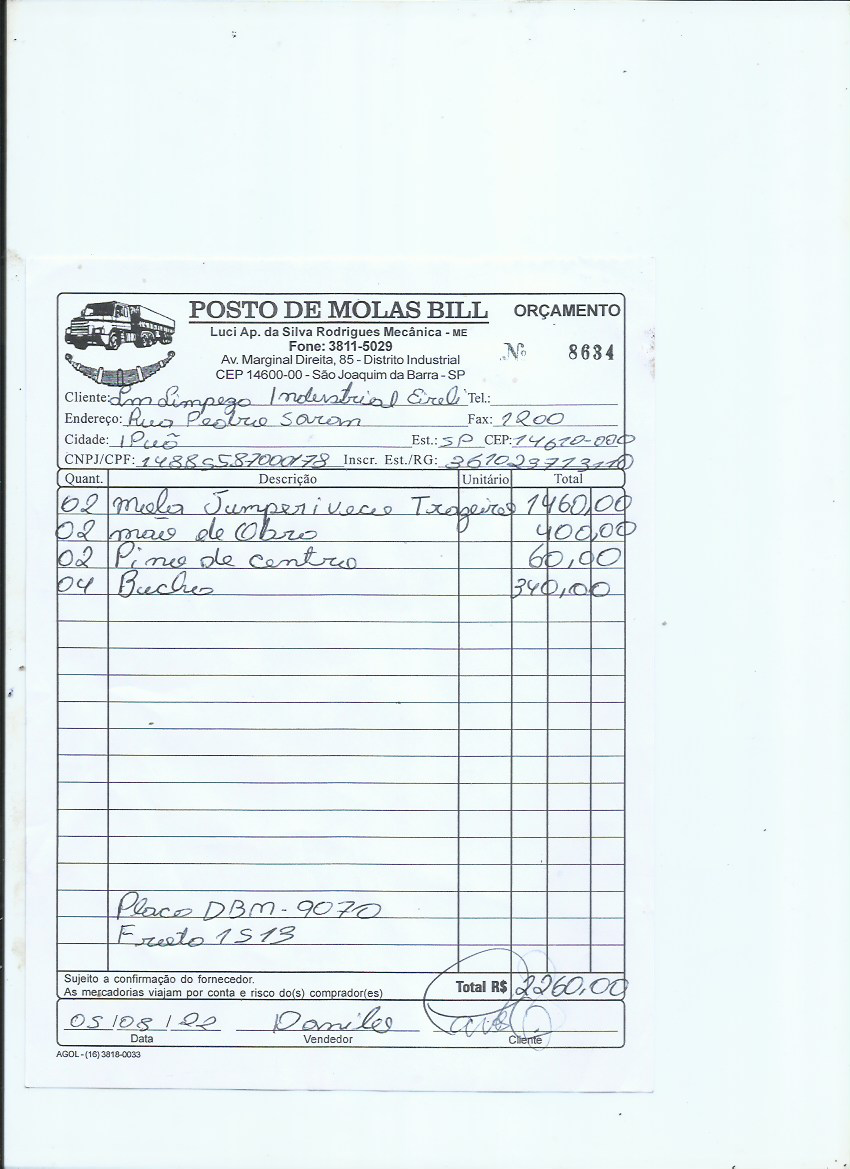 POSTO DE MOLAS BILL ORÇAMENTO
Luci Ap. da Silva Rodrigues Mecânica - ME
Fone: 3811-5029
Av. Marginal Direita, 85 - Distrito Industrial
CEP 14600-00 - São Joaquim da Barra - SP
Nº 8634
Cliente: Lm Limpeza Industrial Eireli Tel.:
Endereço: Rua Pedro Saran Fax: 1200
Cidade: IPuã Est.: SP CEP: 14610-000
CNPJ/CPF: Inscr. Est./RG:
Quant. Descrição Unitário Total
02 Mola Jumper iveco Trazeira 1460,00
02 mão de Obra 400,00
02 Pino de centro 60,00
04 Buchas 340,00
Placa DBM-9070
Frota 1513
Sujeito a confirmação do fornecedor.
As mercadorias viajam por conta e risco do(s) comprador(es)
Total R$ 2260,00
05/08/22 Danilo
Data Vendedor Cliente
AGOL - (16) 3818-0033